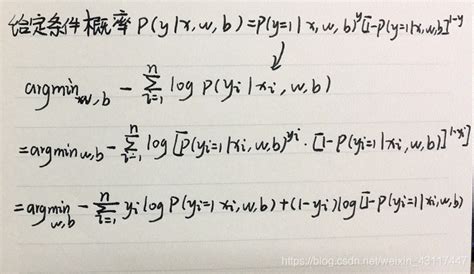 给定条件概率 P(y|x,w,b)=P(y=1|x,w,b)^y[1-P(y=1|x,w,b)]^{1-y}
argmin_{w,b} - \sum_{i=1}^{n} log P(y_i|x_i,w,b)
=argmin_{w,b} - \sum_{i=1}^{n} log [P(y_i=1|x_i,w,b)^{y_i}·[1-P(y_i=1|x_i,w,b)]^{1-y_i}]
=argmin_{w,b} - \sum_{i=1}^{n} y_i log P(y_i=1|x_i,w,b)+(1-y_i)log[1-P(y_i=1|x_i,w,b)
https://blog.csdn.net/weixin_43117447